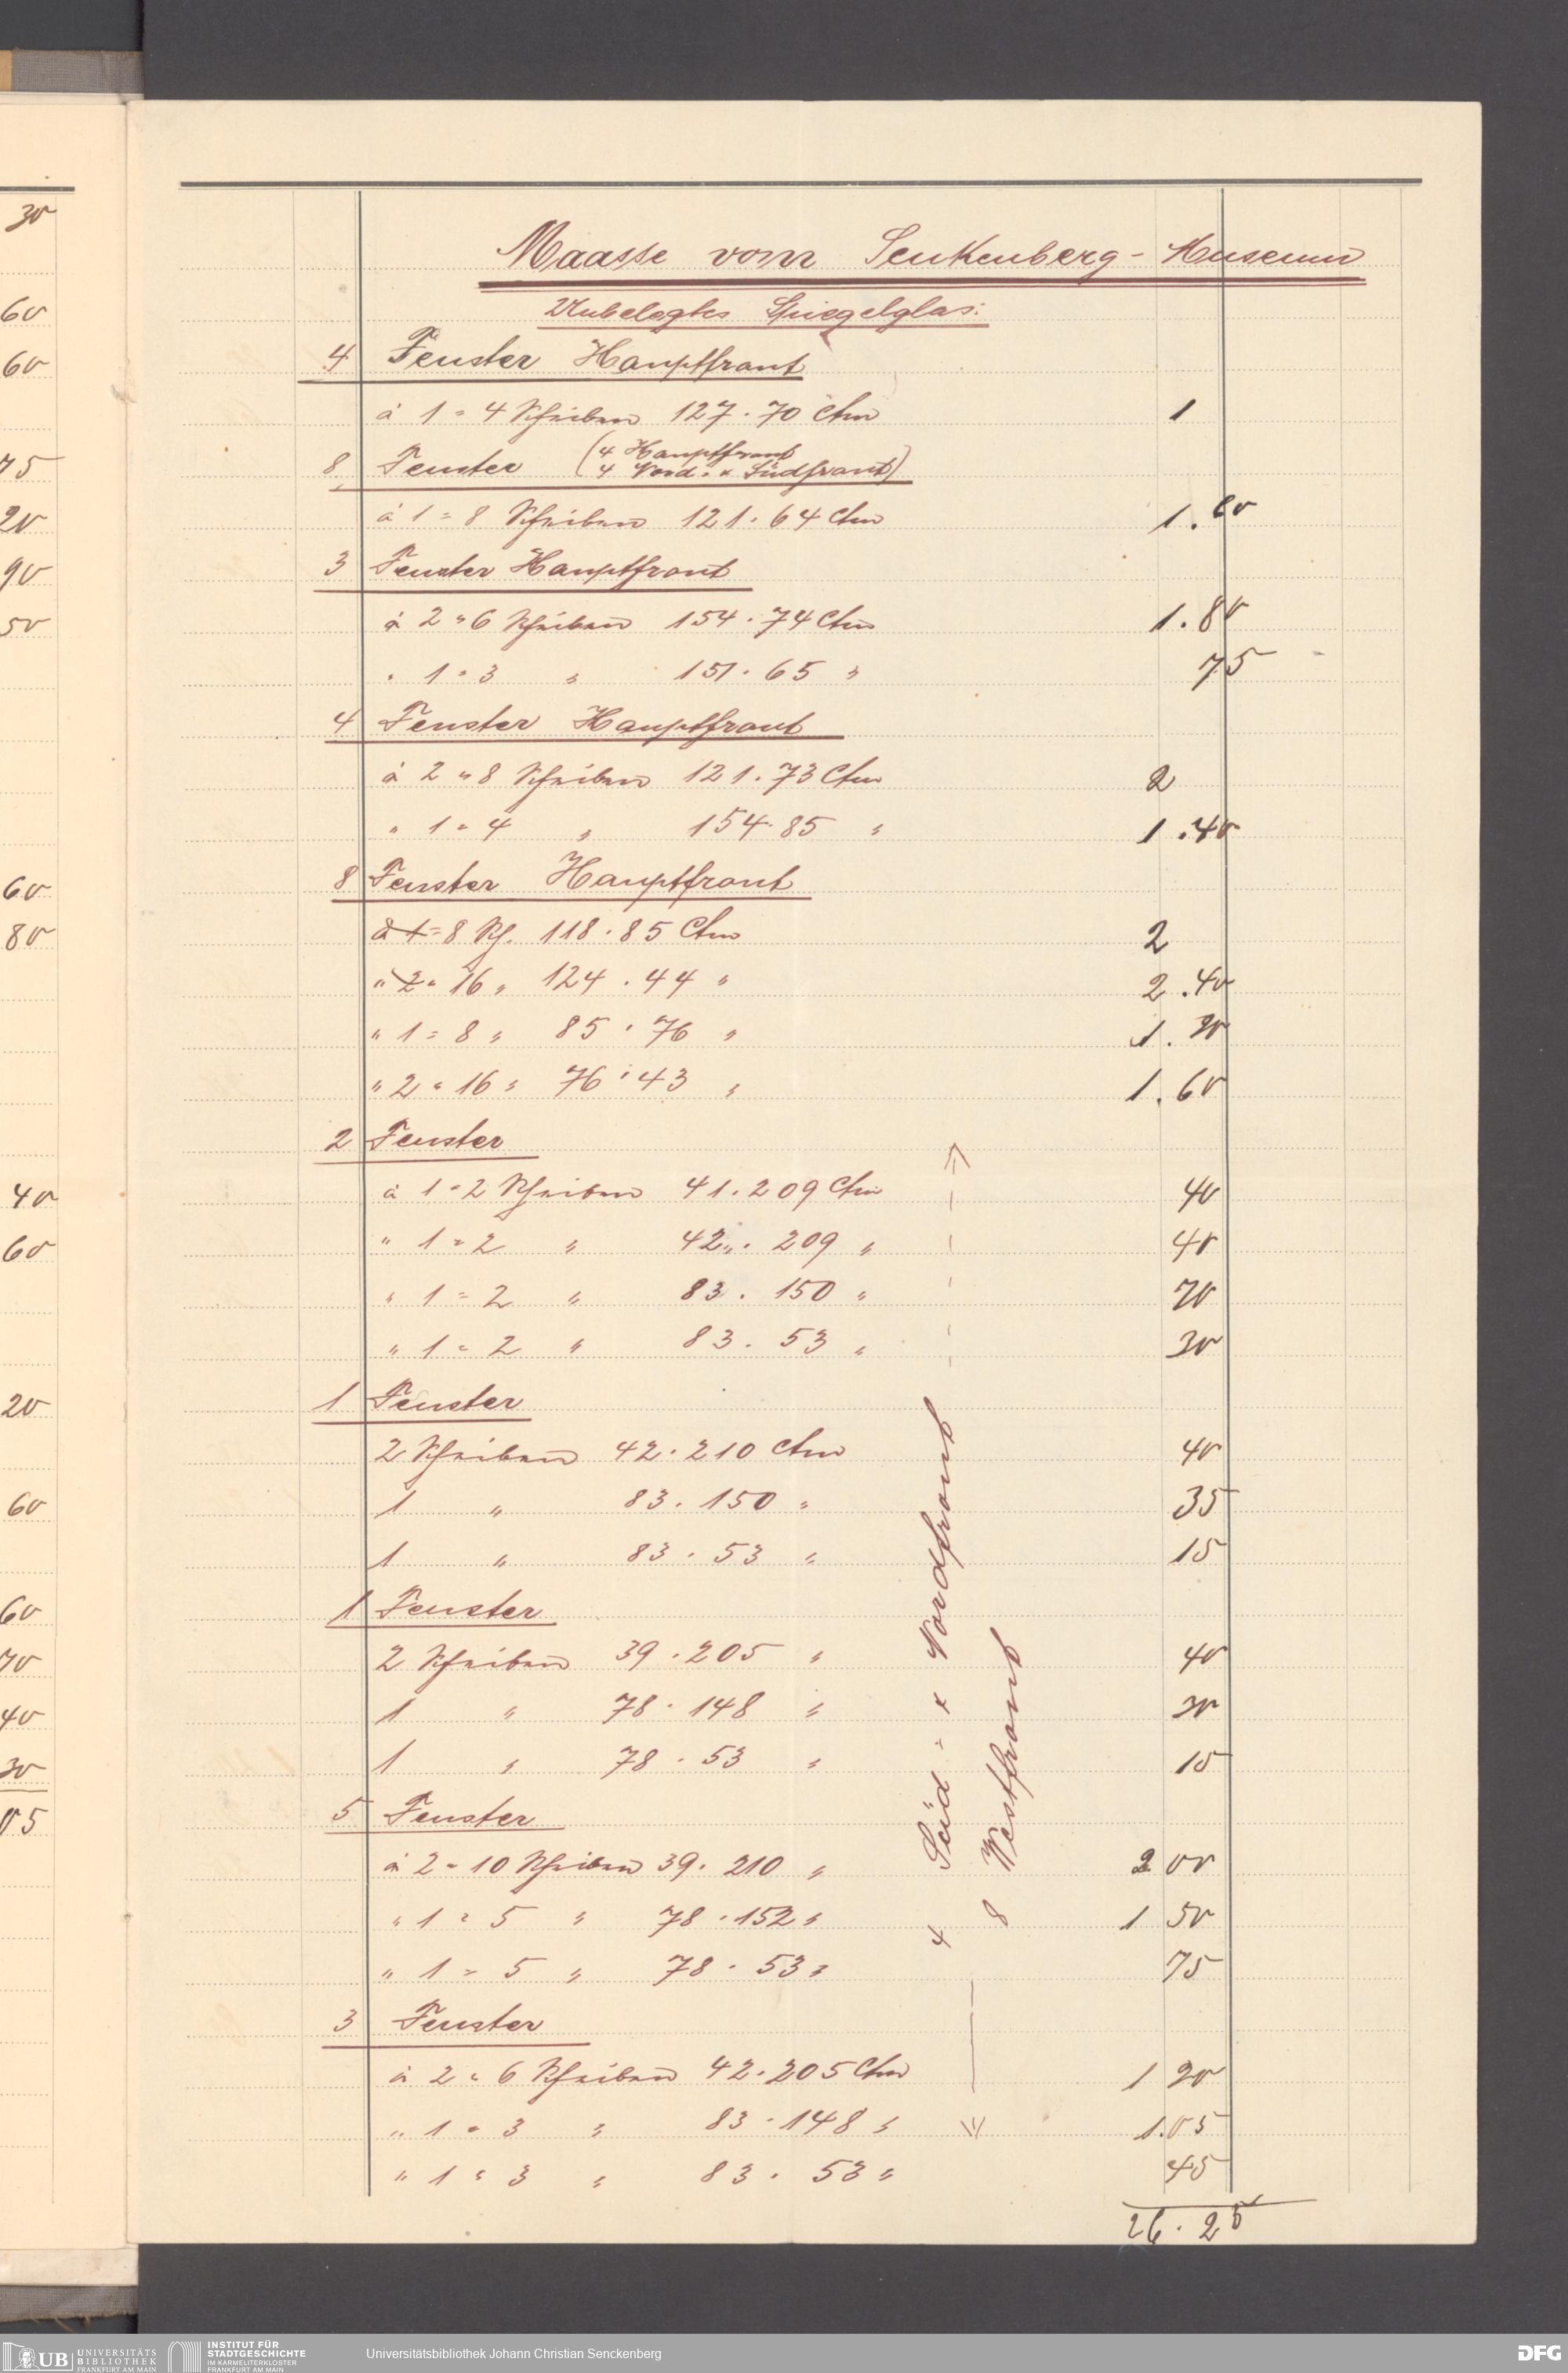 30
60
60
75
20
90
50
60
80
40
60
20
60
60
70
40
30
05
Maasse vom Senkenberg-Museum
Unbelegtes Spiegelglas:
4 Fenster Hauptfront
á 1 = 4 Scheiben 127 . 70 Ctm 1
8 Fenster (4 Hauptfront
4 Nord- & Südfront)
á 1 = 8 Scheiben 121 . 64 Ctm 1 . 60
3 Fenster Hauptfront
á 2 = 6 Scheiben 154 . 74 Ctm 1 . 80
" 1 = 3 " 151 . 65 " 75
4 Fenster Hauptfront
á 2 = 8 Scheiben 121 . 73 Ctm 2
" 1 = 4 " 154 . 85 " 1 . 40
8 Fenster Hauptfront
á 1 = 8 Sch. 118 . 85 Ctm 2
" 2 = 16 " 124 . 44 " 2 . 40
" 1 = 8 " 85 . 76 " 1 . 20
" 2 = 16 " 76 . 43 " 1 . 60
2 Fenster
á 1 = 2 Scheiben 41 . 209 Ctm 40
" 1 = 2 " 42 . 209 " 40
" 1 = 2 " 83 . 150 " 70
" 1 = 2 " 83 . 53 " 30
1 Fenster
2 Scheiben 42 . 210 Ctm 40
1 " 83 . 150 " 35
1 " 83 . 53 " 15
1 Fenster
2 Scheiben 39 . 205 " 40
1 " 78 . 148 " 30
1 " 78 . 53 " 15
5 Fenster
á 2 = 10 Scheiben 39 . 210 " 2 00
" 1 = 5 " 78 . 152 " 1 50
" 1 = 5 " 78 . 53 " 75
3 Fenster
á 2 = 6 Scheiben 42 . 205 Ctm 1 20
" 1 = 3 " 83 . 148 " 1 . 05
" 1 = 3 " 83 . 53 " 45
26 . 25
4 Süd- & Nordfront
8 Westfront
UB UNIVERSITÄTS
BIBLIOTHEK
FRANKFURT AM MAIN
INSTITUT FÜR
STADTGESCHICHTE
IM KARMELITERKLOSTER
FRANKFURT AM MAIN
Universitätsbibliothek Johann Christian Senckenberg
DFG